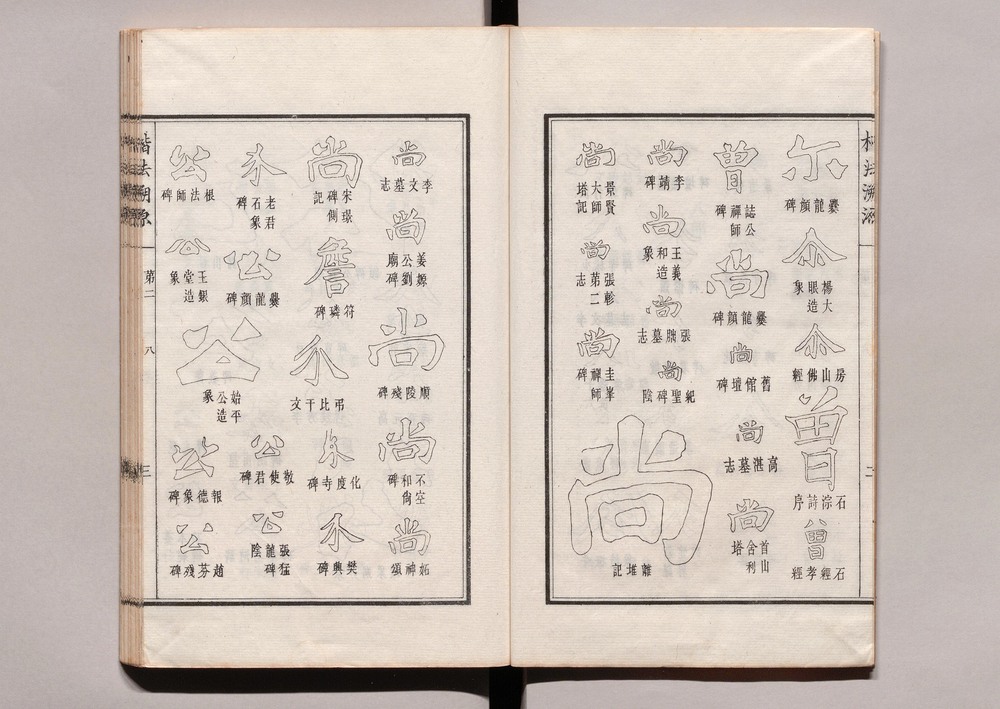 尓 爨龍顏碑
尒 楊大眼造象
尒 房山佛經
曾 石淙詩序
曾 石經孝經
曾 誌公禪師碑
尚 爨龍顏碑
尚 舊館壇碑
尚 高湛墓志
尚 首山舍利塔
尚 李靖碑
尚 王義和造象
尚 張朏墓志
尚 紀聖碑陰
尚 離堆記
尚 景賢大師塔記
尚 張軫第二志
尚 圭峯禪師碑
尚 李文墓志
尚 姜嫄公劉廟碑
尚 順陵殘碑
尚 不空和尙碑
尚 妬神頌
尚 宋璟碑側記
詹 符璘碑
弔比干文
化度寺碑
樊興碑
老君石象碑
公 爨龍顏碑
公 敬使君碑
公 張猛龍碑陰
公 根法師碑
公 王銀堂造象
公 始平公造象
公 報德象碑
公 趙芬殘碑
楷法溯源
第二
八
三